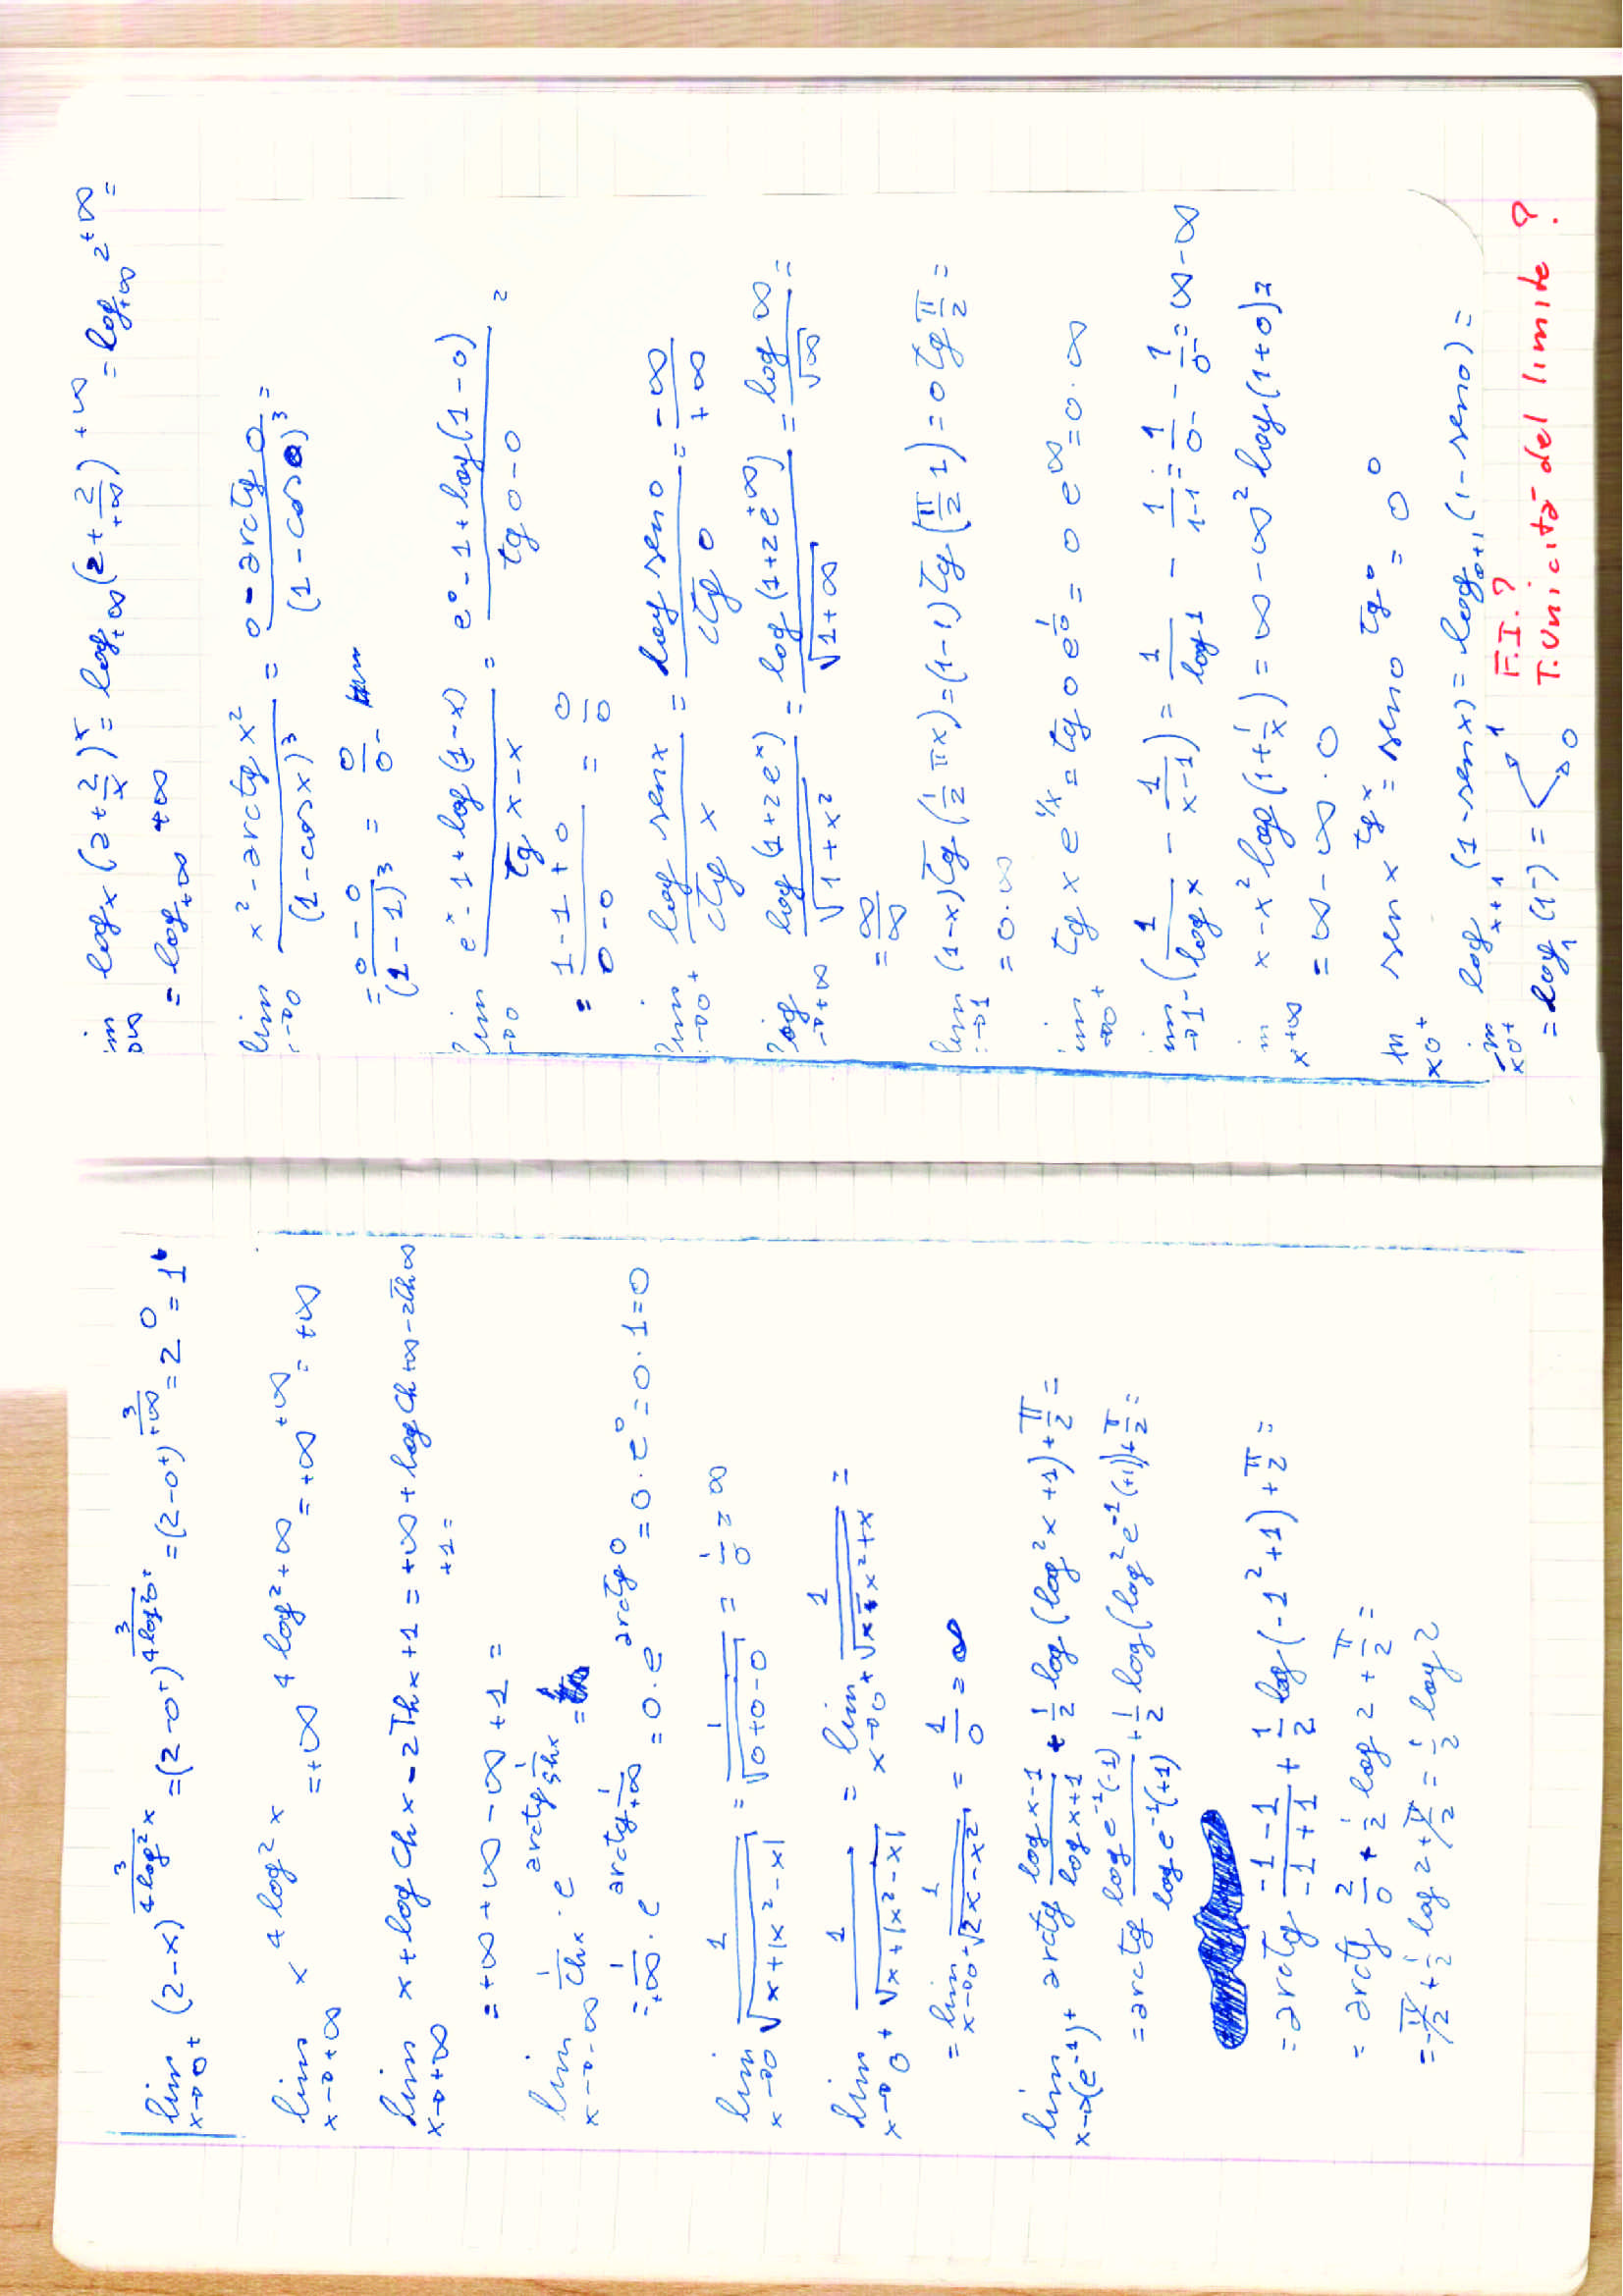 lim x→0+ (2-x)^(3/(4log²x)) = (2-0+)^(3/(4log²0+)) = (2-0+)^(3/+∞) = 2^0 = 1
lim x→+∞ x^(4log²x) = +∞^(4log²+∞) = +∞^(+∞) = +∞
lim x→+∞ x+log Ch x - 2Th x + 1 = +∞ + log Ch+∞ - 2Th∞ + 1 =
= +∞ + ∞ - ∞ + 1 =
lim x→-∞ 1/Chx · e^(arctg 1/Shx) =
= 1/+∞ · e^(arctg 1/+∞) = 0·e^(arctg 0) = 0·e^0 = 0·1 = 0
lim x→0 1/√(x+|x²-x|) = 1/√(0+0-0) = 1/0 = ∞
lim x→0+ 1/√(x+|x²-x|) = lim x→0+ 1/√(x x²+x) =
= lim x→0+ 1/√(2x-x²) = 1/0 = ∞
lim x→(e^-1)+ arctg (log x-1)/(log x+1) + 1/2 log(log²x+1) + π/2 =
= arctg (log e^-1(-1))/(log e^-1(+1)) + 1/2 log(log²e^-1(+1)) + π/2 =
= arctg (-1-1)/(-1+1) + 1/2 log(-1²+1) + π/2 =
= arctg 2/0 + 1/2 log 2 + π/2 =
= -π/2 + 1/2 log 2 + π/2 = 1/2 log 2
im →∞ log x (2+2/x)^x = log+∞ (2+2/+∞)^+∞ = log+∞ 2^+∞ =
= log+∞ +∞
lim →0 (x²-arctg x²)/(1-cos x)³ = (0-arctg 0)/(1-cos 0)³ =
= (0-0)/(1-1)³ = 0/0-
lim →0 (e^x-1+log(1-x))/(tg x-x) = (e^0-1+log(1-0))/(tg 0-0) =
= (1-1+0)/(0-0) = 0/0
lim →0+ (log sen x)/(ctg x) = (log sen 0)/(ctg 0) = -∞/+∞
log →+∞ (log(1+2e^x))/√(1+x²) = (log(1+2e^+∞))/√(1+∞) = (log ∞)/√∞ =
= ∞/∞
lim →1 (1-x)tg(1/2 πx) = (1-1)tg(π/2 1) = 0 tg π/2 =
= 0·∞
im →0+ tg x e^(1/x) = tg 0 e^(1/0) = 0 e^∞ = 0·∞
im →1- (1/log x - 1/(x-1)) = 1/log 1 - 1/(1-1) = 1/0- - 1/0- = ∞-∞
im x+∞ x-x² log(1+1/x) = ∞-∞² log(1+0) =
= ∞-∞·0
im x0+ sen x^(tg x) = sen 0^(tg 0) = 0^0
im x0+ log x+1 (1-sen x) = log 0+1 (1-sen 0) =
= log 1 (1-) = 1 0
F.I.?
T. Unicità del limite?